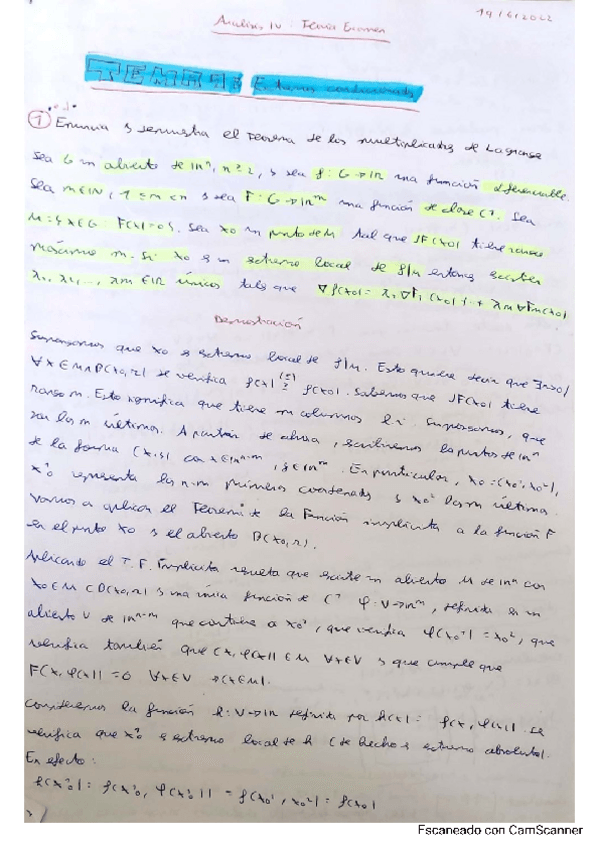 19/6/2022
Análisis IV: Teoría Examen
TEMA 1: Extremos condicionados
① Enuncia y demuestra el Teorema de los multiplicadores de Lagrange
Sea G un abierto de ℝⁿ, n ≥ 2, y sea f: G→ℝ una función diferenciable.
Sea m∈ℕ, 1≤m<n y sea F: G→ℝᵐ una función de clase C¹. Sea
M={x∈G: F(x)=0}. Sea x0 un punto de M tal que JF(x0) tiene rango
máximo m. Si x0 es un extremo local de f|M entonces existen
λ1, λ2, ..., λm ∈ℝ únicos tales que ∇f(x0)= λ1∇F1(x0)+...+λm∇Fm(x0)
Demostración
Supongamos que x0 es extremo local de f|M. Esto quiere decir que ∃r>0/
∀x∈M∩B(x0,r) se verifica f(x) (≤)≥ f(x0). Sabemos que JF(x0) tiene
rango m. Esto significa que tiene m columnas l.i. Supongamos, que
son las m últimas. A partir de ahora, escribiremos los puntos de ℝⁿ
de la forma (x,y) con x∈ℝⁿ⁻ᵐ, y∈ℝᵐ. En particular, x0=(x0¹,x0²),
x0¹ representa las n-m primeras coordenadas y x0² las m últimas.
Vamos a aplicar el Teorema de la Función implícita a la función F
en el punto x0 y el abierto B(x0,r).
Aplicando el T. F. Implícita resulta que existe un abierto U de ℝⁿ con
x0∈U⊂B(x0,r) y una única función de C¹ φ:V→ℝᵐ, definida en un
abierto V de ℝⁿ⁻ᵐ que contiene a x0¹, que verifica φ(x0¹)=x0², que
verifica también que (x,φ(x))∈U ∀x∈V y que cumple que
F(x,φ(x))=0 ∀x∈V
Consideremos la función h:V→ℝ definida por h(x)= f(x,φ(x)). Se
verifica que x0¹ es extremo local de h (de hecho es extremo absoluto).
En efecto:
h(x0¹)= f(x0¹, φ(x0¹)) = f(x0¹, x0²)= f(x0)
Escaneado con CamScanner